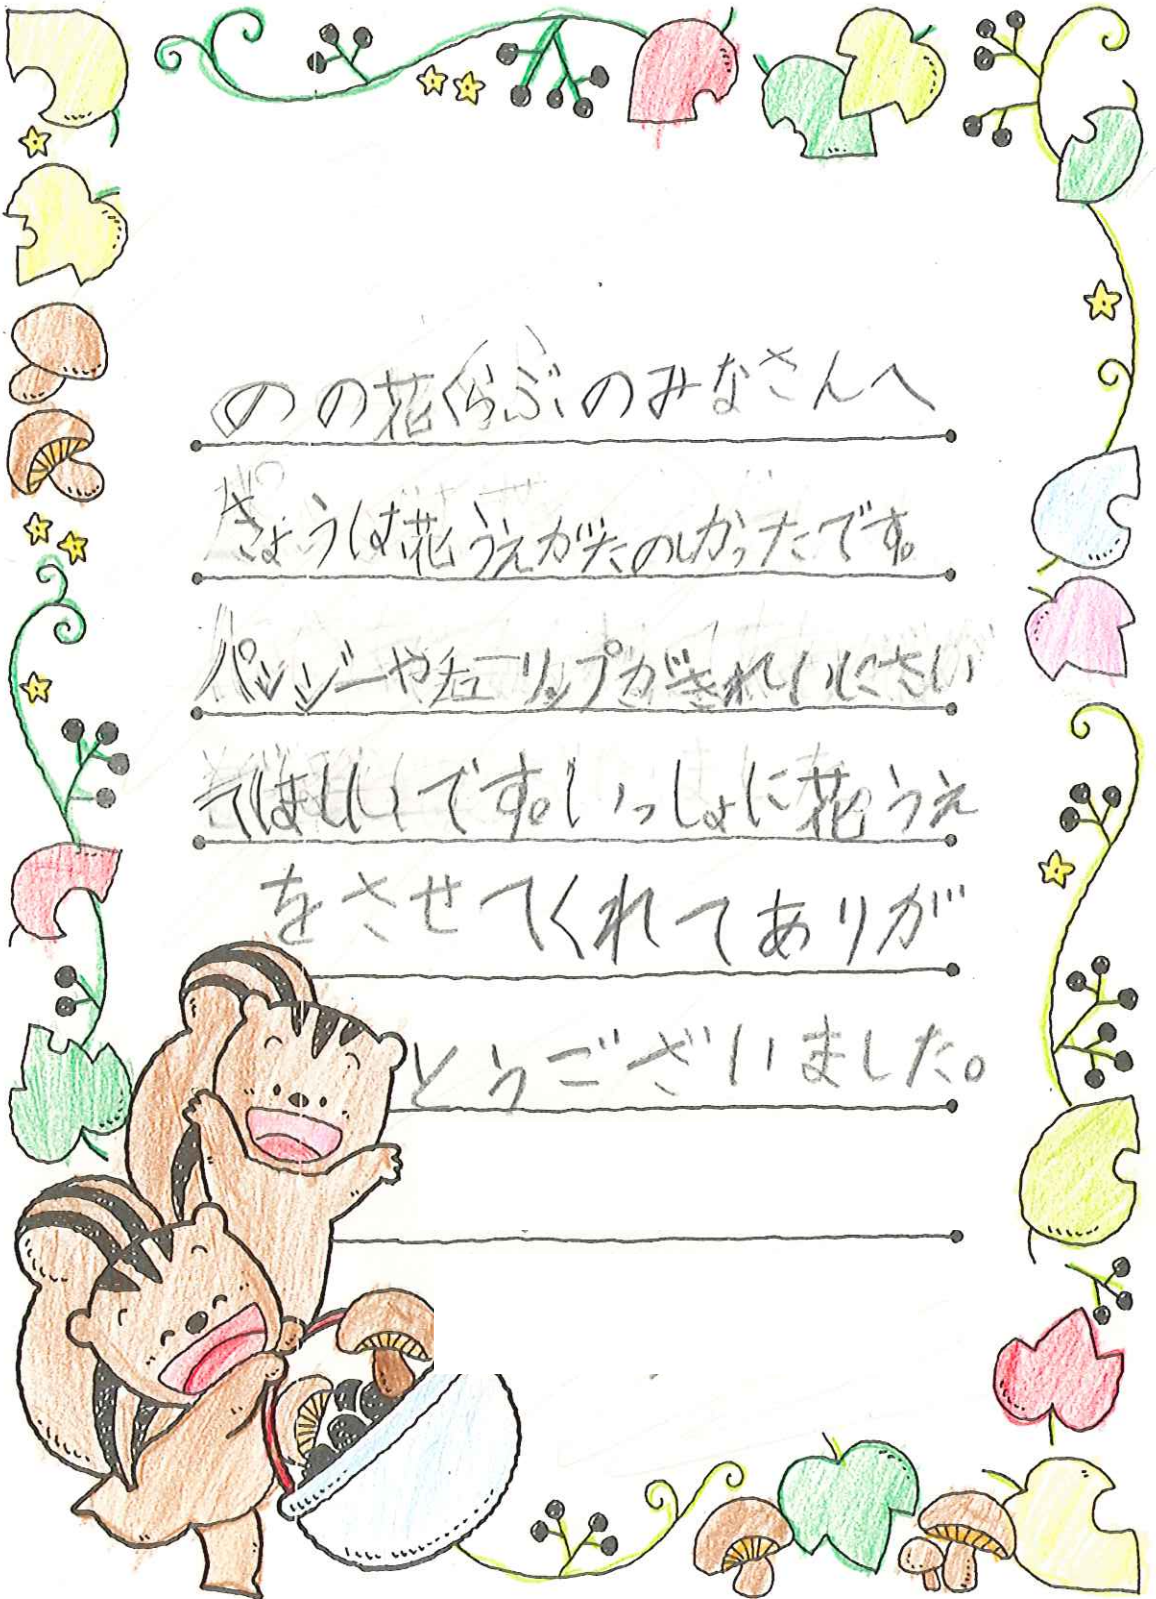 のの花くらぶのみなさんへ
きょうは花うえがたのしかったです。
パンジーやチューリップがきれいにさい
てほしいです。いっしょに花うえ
をさせてくれてありが
とうございました。